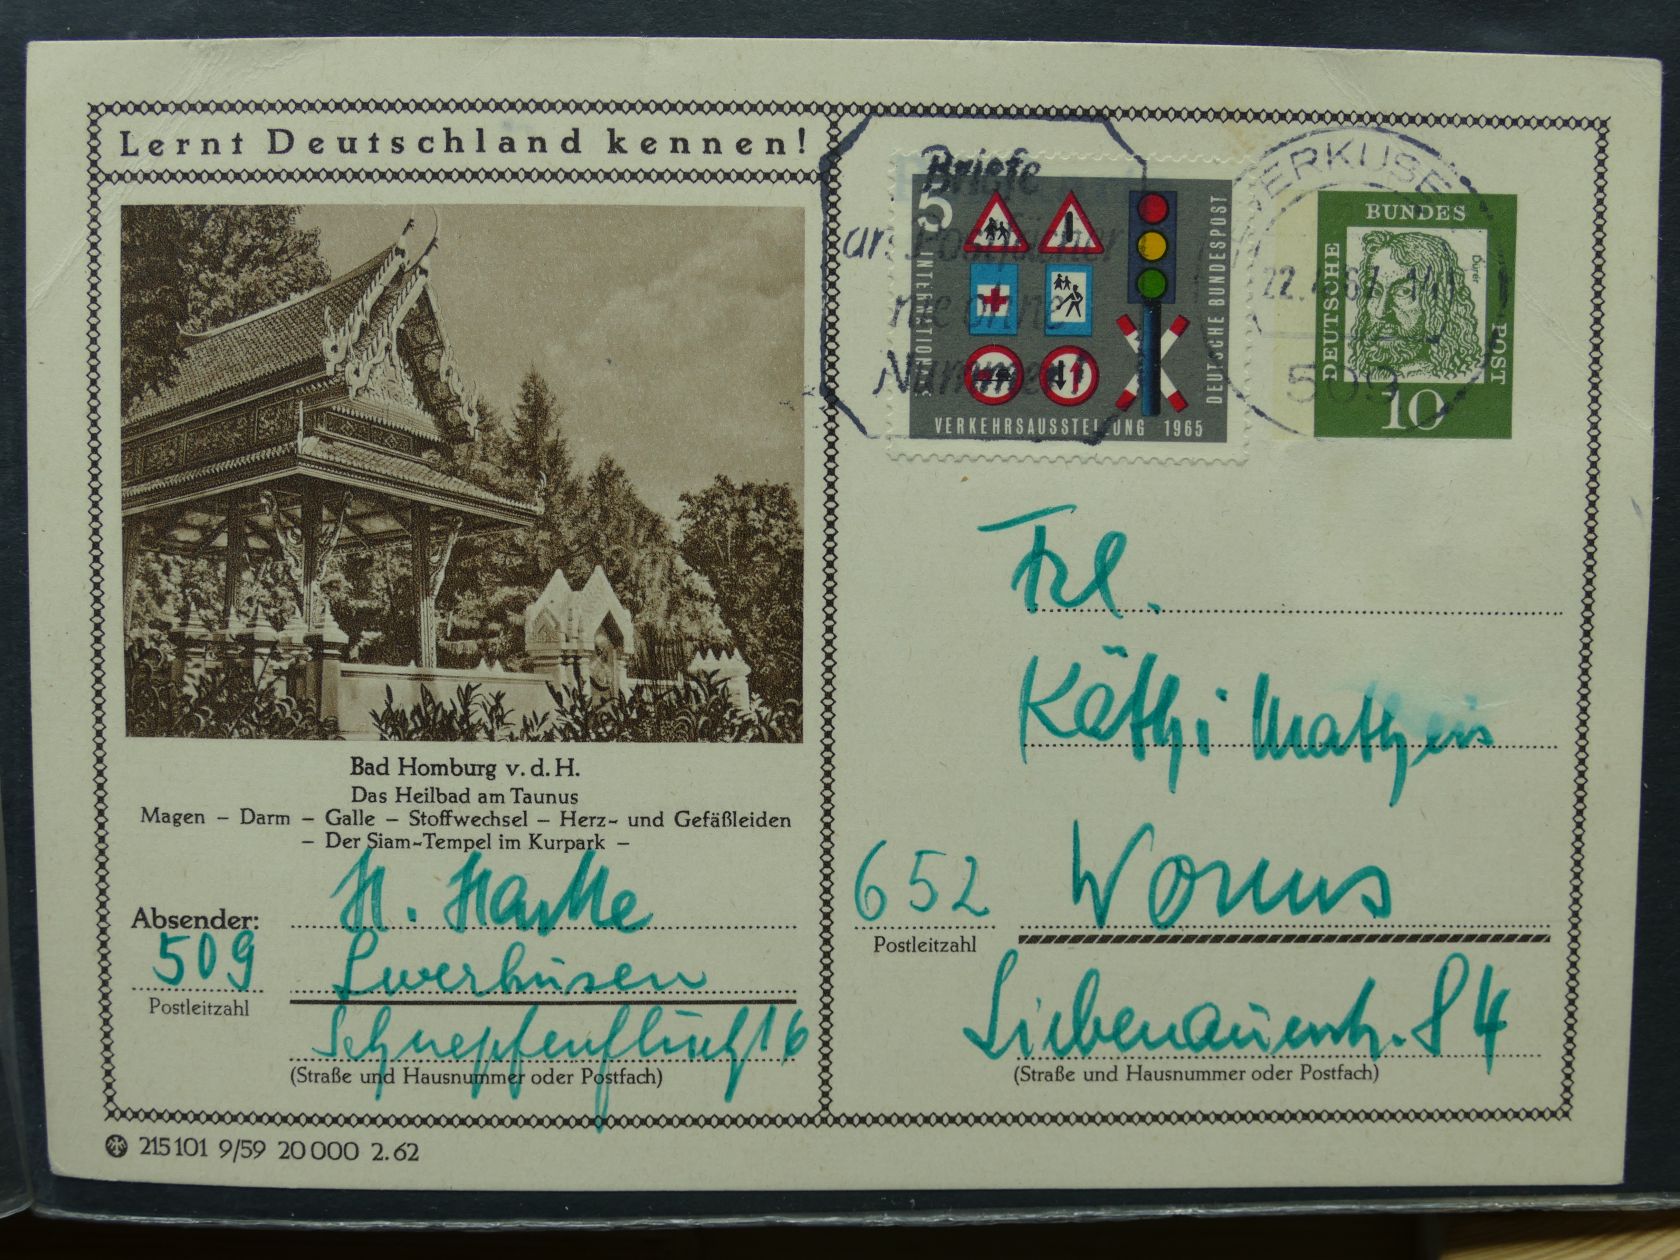 Lernt Deutschland kennen!
Bad Homburg v. d. H.
Das Heilbad am Taunus
Magen – Darm – Galle – Stoffwechsel – Herz- und Gefäßleiden
– Der Siam-Tempel im Kurpark –
Absender: H.
509
Postleitzahl
(Straße und Hausnummer oder Postfach)
215101 9/59 20 000 2.62
Briefe
an Postfächer
nie ohne
Nummer!
5
INTERNATIONALE
VERKEHRSAUSSTELLUNG 1965
DEUTSCHE BUNDESPOST
ERKUSE
22.
509
DEUTSCHE
BUNDES
POST
Dürer
10
Frl.
Käthi Matheis
652 Worms
Postleitzahl
Liebenauerstr. 84
(Straße und Hausnummer oder Postfach)